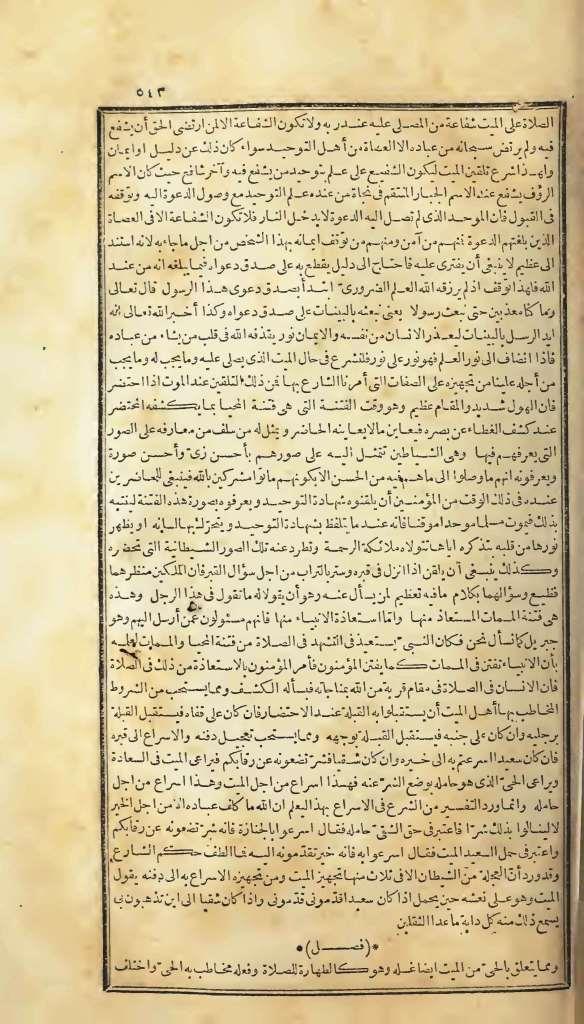 ٥٤٣
الصلاة على الميت شفاعة من المصلى عليه عند ربه ولا تكون الشفاعة الا لمن ارتضى الحق أن يشفع
فيه ولم يرتض سبحانه من عباده الا العصاة من أهل التوحيد سواء كان ذلك عن دليل أو ايمان
ولهذا شرع تلقين الميت ليكون الشفيع على علم بتوحيد من يشفع فيه وآخر شافع حيث كان الاسم
الرؤف يشفع عند الاسم الجبار المنتقم فى نجاة من عنده علم التوحيد مع وصول الدعوة اليه وتوقفه
فى القبول فان الموحد الذى لم تصل اليه الدعوة لا يدخل النار فلا تكون الشفاعة الا فى العصاة
الذين بلغتهم الدعوة فمنهم من آمن ومنهم من توقف ايمانه بهذا الشخص من اجل ما جاء به لانه استند
الى عظيم لا ينبغى أن يفترى عليه فاحتاج الى دليل يقطع به على صدق دعواه فيما يبلغه انه من عند
الله فلهذا توقف اذ لم يرزقه الله العلم الضرورى ابتدأ بصدق دعوى هذا الرسول قال تعالى
وما كنا معذبين حتى نبعث رسولا يعنى نبعثه بالبينات على صدق دعواه وكذا أخبر الله تعالى انه
ايد الرسل بالبينات ليعذر الانسان من نفسه والايمان نور يقذفه الله فى قلب من يشاء من عباده
فاذا انضاف الى نور العلم فهو نور على نور فلنشرع فى حال الميت الذى يصلى عليه وما يجب له وما يجب
من أجله علينا من تجهيزه على الصفات التى أمرنا الشارع بها فمن ذلك التلقين عند الموت اذا احتضر
فان الهول شديد والمقام عظيم وهو وقت الفتنة التى هى فتنة المحيا بما يكشفه المحتضر
عند كشف الغطاء عن بصره فيعاين ما لا يعاينه الحاضر ويمثل له من سلف من معارفه على الصور
التى يعرفهم فيها وهى الشياطين تتمثل اليه على صورهم بأحسن زى وأحسن صورة
ويعرفونه انهم ما وصلوا الى ما هم فيه من الحسن الا بكونهم ماتوا مشركين بالله فينبغى للحاضرين
عنده فى ذلك الوقت من المؤمنين أن يلقنوه شهادة التوحيد ويعرفوه بصورة هذه الفتنة لينتبه
بذلك فيموت مسلما موحدا موقنا فانه عند ما يتلفظ بشهادة التوحيد ويتحرك بها لسانه او يظهر
نورها من قلبه بتذكره اياها تتولاه ملائكة الرحمة وتطرد عنه تلك الصور الشيطانية التى تحضره
وكذلك ينبغى أن يلقن اذا انزل فى قبره وستر بالتراب من اجل سؤال القبر فان الملكين منظرهما
فظيع وسؤالهما بكلام ما فيه تعظيم لمن يسأل عنه وهو أن يقولا له ما تقول فى هذا الرجل وهذه
هى فتنة الممات المستعاذ منها واما استعاذة الانبياء منها فانهم مسئولون عمن أرسل اليهم وهو
جبريل كما نسأل نحن فكان النبى يستعيذ فى التشهد فى الصلاة من فتنة المحيا والممات لعلمه
بأن الانبياء تفتن فى الممات كما يفتن المؤمنون فأمر المؤمنون بالاستعاذة من ذلك فى الصلاة
فان الانسان فى الصلاة فى مقام قربة من الله بمناجاته فيسأله الكشف ومما يستحب من الشروط
المخاطب بها أهل الميت أن يستقبلوا به القبلة عند الاحتضار فان كان على قفاه فيستقبل القبلة
برجليه وان كان على جنبه فيستقبل القبلة بوجهه ومما يستحب تعجيل دفنه والاسراع الى قبره
فان كان سعيدا اسرعتم به الى خيره وان كان شقيا فشر تضعونه عن رقابكم فيراعى الميت فى السعادة
ويراعى الحى الذى هو حامله بوضع الشر عنه فهذا اسراع من اجل الميت وهذا اسراع من اجل
حامله وانما ورد التفسير من الشرع فى الاسراع بهذا ليعلم ان الله ما كلف عباده الا من اجل الخير
لا لينالوا بذلك شرا فاعتبر فى حق الشقى حامله فقال اسرعوا بالجنازة فانه شر تضعونه عن رقابكم
واعتبر فى حمل السعيد الميت فقال اسرعوا به فانه خير تقدمونه اليه فما الطف حكم الشارع
وقد ورد أن العجلة من الشيطان الا فى ثلاث منها تجهيز الميت ومن تجهيزه الاسراع به الى دفنه يقول
الميت وهو على نعشه حين يحمل اذا كان سعيدا قدمونى قدمونى واذا كان شقيا الى اين تذهبون بى
يسمع ذلك منه كل دابة ما عدا الثقلين
*(فصل)*
ومما يتعلق بالحى من الميت ايضا غسله وهو كالطهارة للصلاة وفعله مخاطب به الحى واختلف